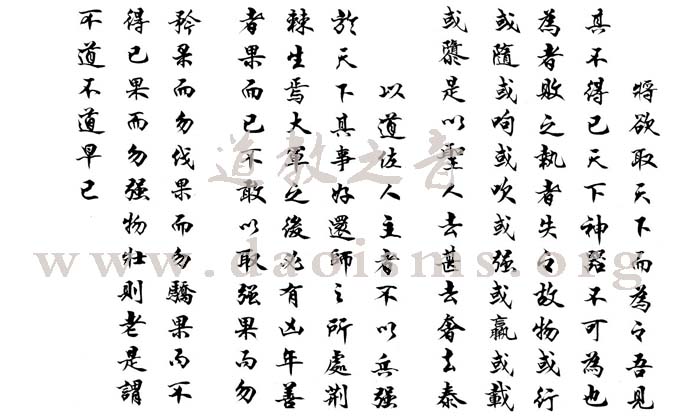 将欲取天下而為之吾見
其不得已天下神器不可為也
為者敗之執者失之故物或行
或隨或呴或吹或强或羸或載
或隳是以聖人去甚去奢去泰
以道佐人主者不以兵强
於天下其事好還師之所處荆
棘生焉大軍之後必有凶年善
者果而已不敢以取强果而勿
矜果而勿伐果而勿驕果而不
得已果而勿强物壯則老是謂
不道不道早已
道教之音
www.daoisms.org